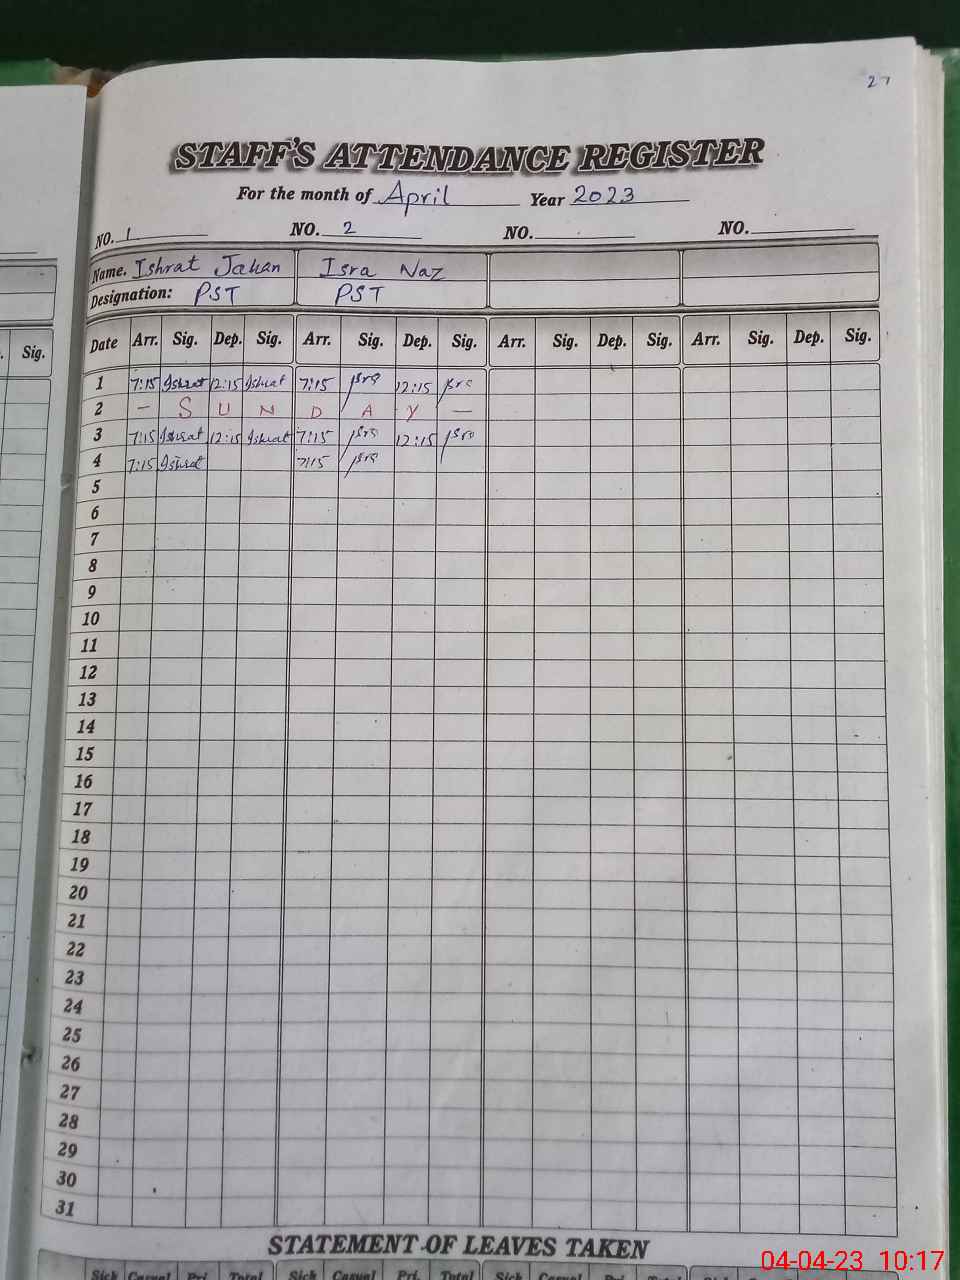 27
STAFF'S ATTENDANCE REGISTER
For the month of April Year 2023
NO. 1 NO. 2 NO. NO.
Name. Ishrat Jahan Isra Naz
Designation: PST PST
Sig.
Date Arr. Sig. Dep. Sig. Arr. Sig. Dep. Sig. Arr. Sig. Dep. Sig. Arr. Sig. Dep. Sig.
1 7:15 Ishrat 12:15 Ishrat 7:15 Isra 12:15 Isra
2 - S U N D A Y -
3 7:15 Ishrat 12:15 Ishrat 7:15 Isra 12:15 Isra
4 7:15 Ishrat 7:15 Isra
5
6
7
8
9
10
11
12
13
14
15
16
17
18
19
20
21
22
23
24
25
26
27
28
29
30
31
STATEMENT OF LEAVES TAKEN
Sick Casual Pri. Total Sick Casual Pri. Total Sick Casual Pri. Total Sick Casual Pri. Total
04-04-23 10:17